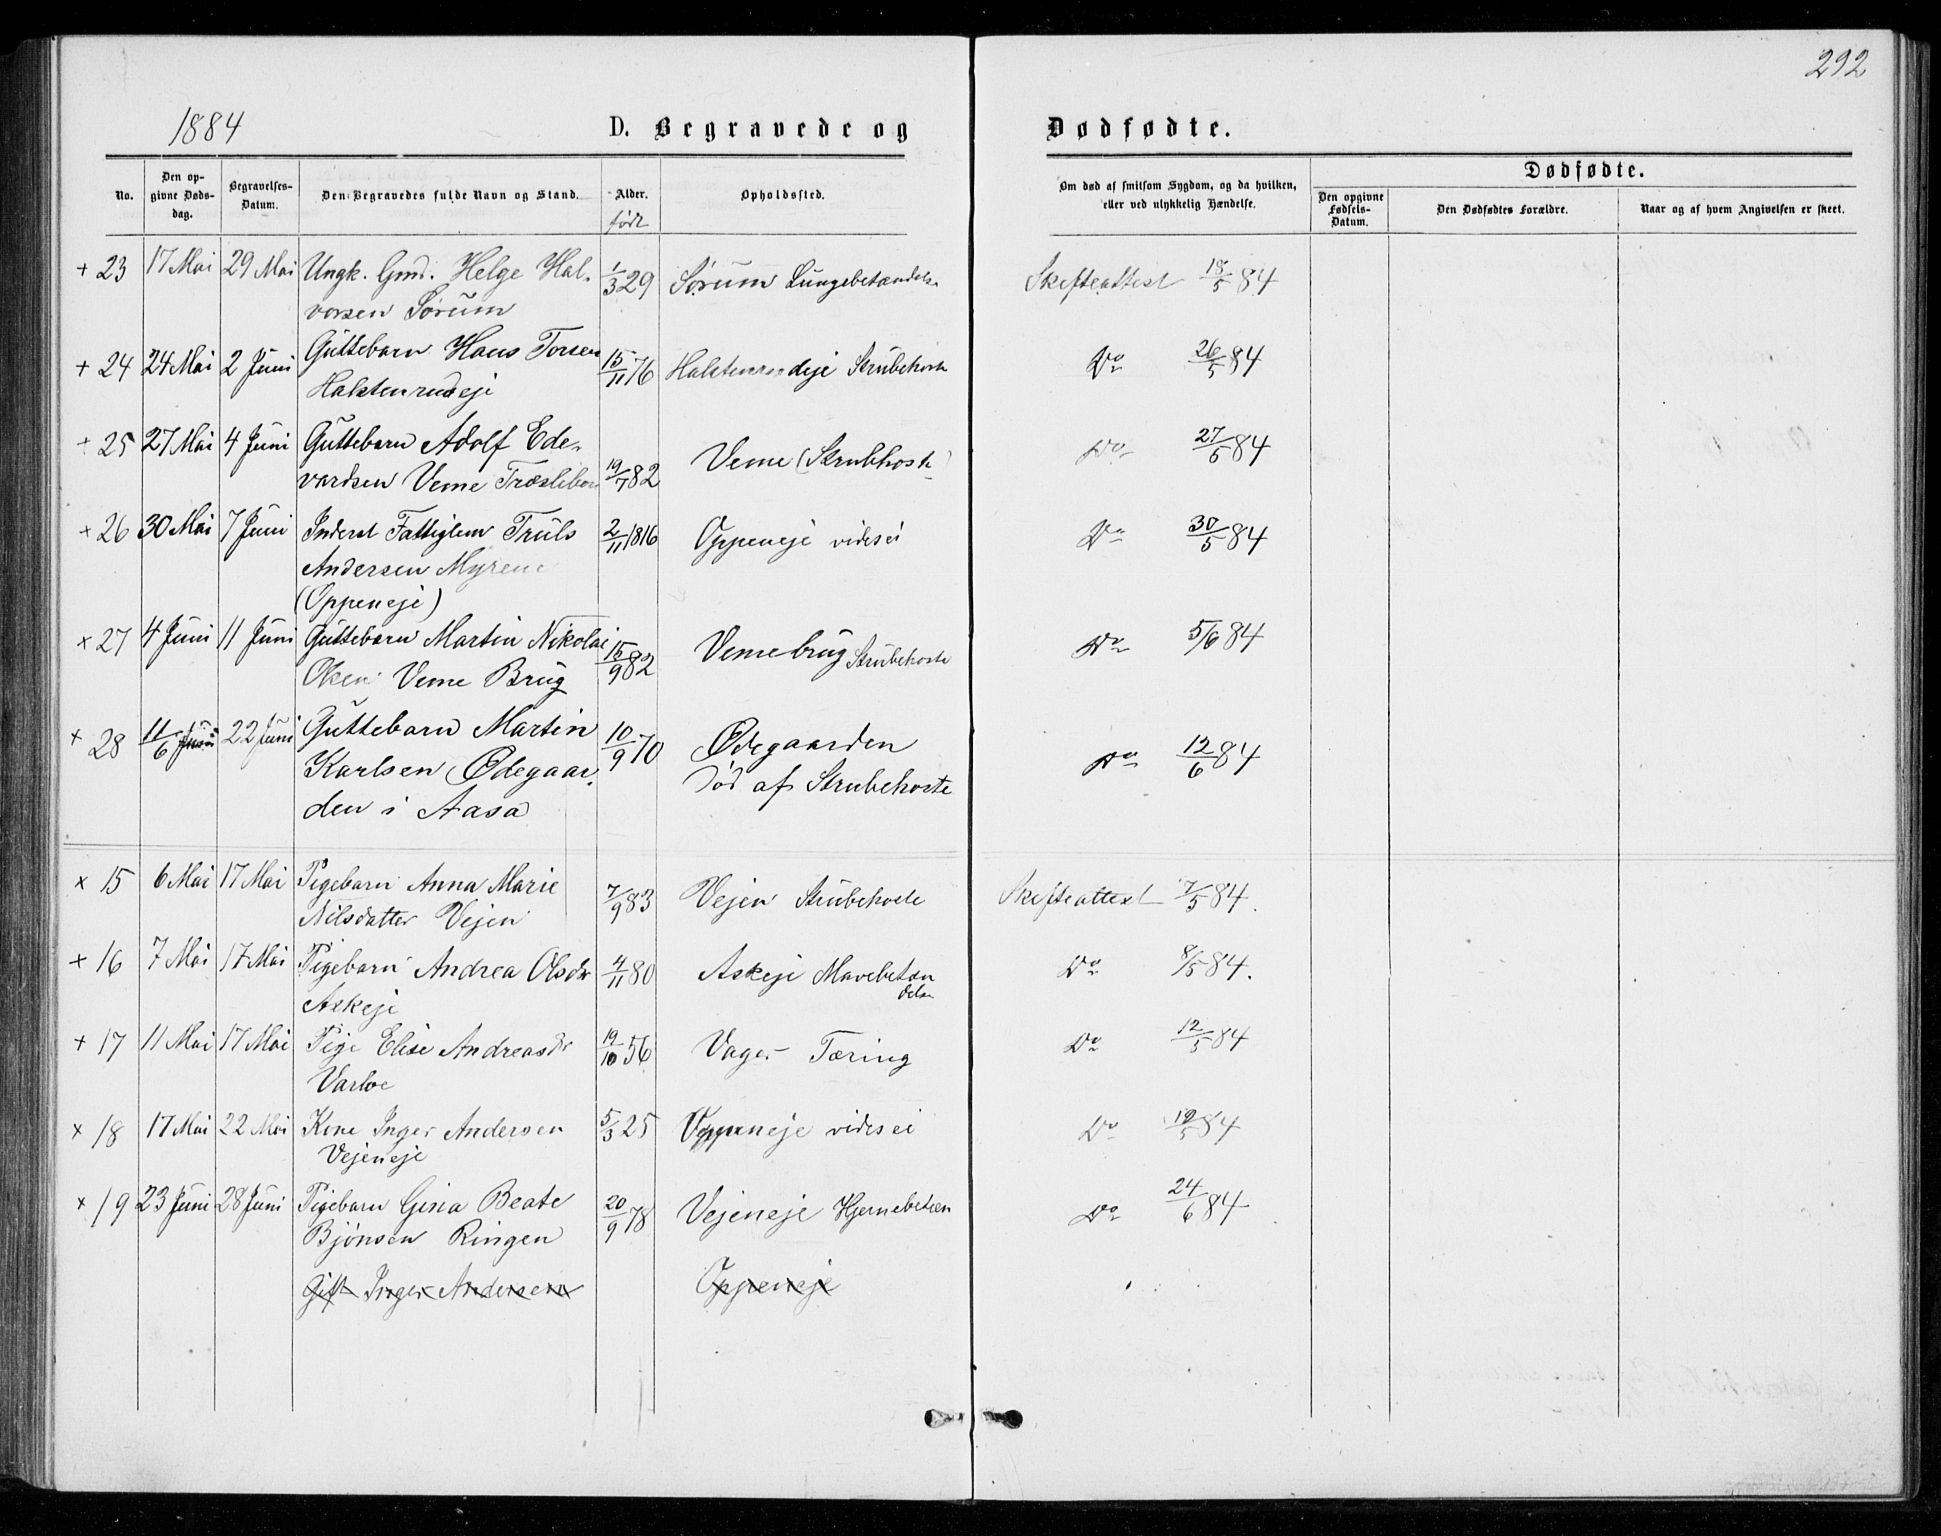 292
1884
D. Begravede og Dødfødte.
No.
Den opgivne Døds-dag.
Begravelses-Datum.
Den Begravedes fulde Navn og Stand.
Alder.
født
Opholdssted.
Om død af smitsom Sygdom, og da hvilken, eller ved ulykkelig Hændelse.
Dødfødte.
Den opgivne Fødsels-Datum.
Den Dødfødtes Forældre.
Naar og af hvem Angivelsen er skeet.
+ 23 17 Mai 29 Mai Ungk. Gmd. Helge Hal- 1/3 29 Sørum Lungebetændelse Skifteattest 18/5 84
vorsen Sørum
+ 24 24 Mai 2 Juni Guttebarn Hans Torsen 15/11 76 Halstenrudeje Strubehoste Do 26/5 84
Halstenrudeje
+ 25 27 Mai 4 Juni Guttebarn Adolf Ede- 19/7 82 Veme (Strubhoste) Do 27/5 84
vardsen Veme
+ 26 30 Mai 7 Juni Inderst Fattiglem Truls 2/11 1816 Oppeneje vides ei Do 30/5 84
Andersen Myrene
(Oppeneje)
+ 27 4 Juni 11 Juni Guttebarn Martin Nikolai 15/9 82 Vemebrug Strubehoste Do 5/6 84
Olsen Veme Brug
+ 28 11/6 22 Juni Guttebarn Martin 10/9 70 Ødegaarden Do 12/6 84
Karlsen (Ødegaar- død af Strubehoste
den i Aasa
x 15 6 Mai 17 Mai Pigebarn Anna Marie 7/9 83 Vejen Strubehoste Skifteattest 7/5 84.
Nilsdatter Vejen
+ 16 7 Mai 17 Mai Pigebarn Andrea Olsdr 4/11 80 Askeje Mavebetæn Do 8/5 84.
Askeje delse
+ 17 11 Mai 17 Mai Pige Elise Andreasdr 19/10 56 Vager Tæring Do 12/5 84
Varloe
x 18 17 Mai 22 Mai Kone Inger Andersen 5/3 25 Oppeneje vides ei Do 19/5 84
Vejeneje
x 19 23 Juni 28 Juni Pigebarn Gina Beate 20/9 78 Vejeneje Hjernebetæn Do 24/6 84
Bjönsen Ringen
Gift Inger Andersen Oppeneje